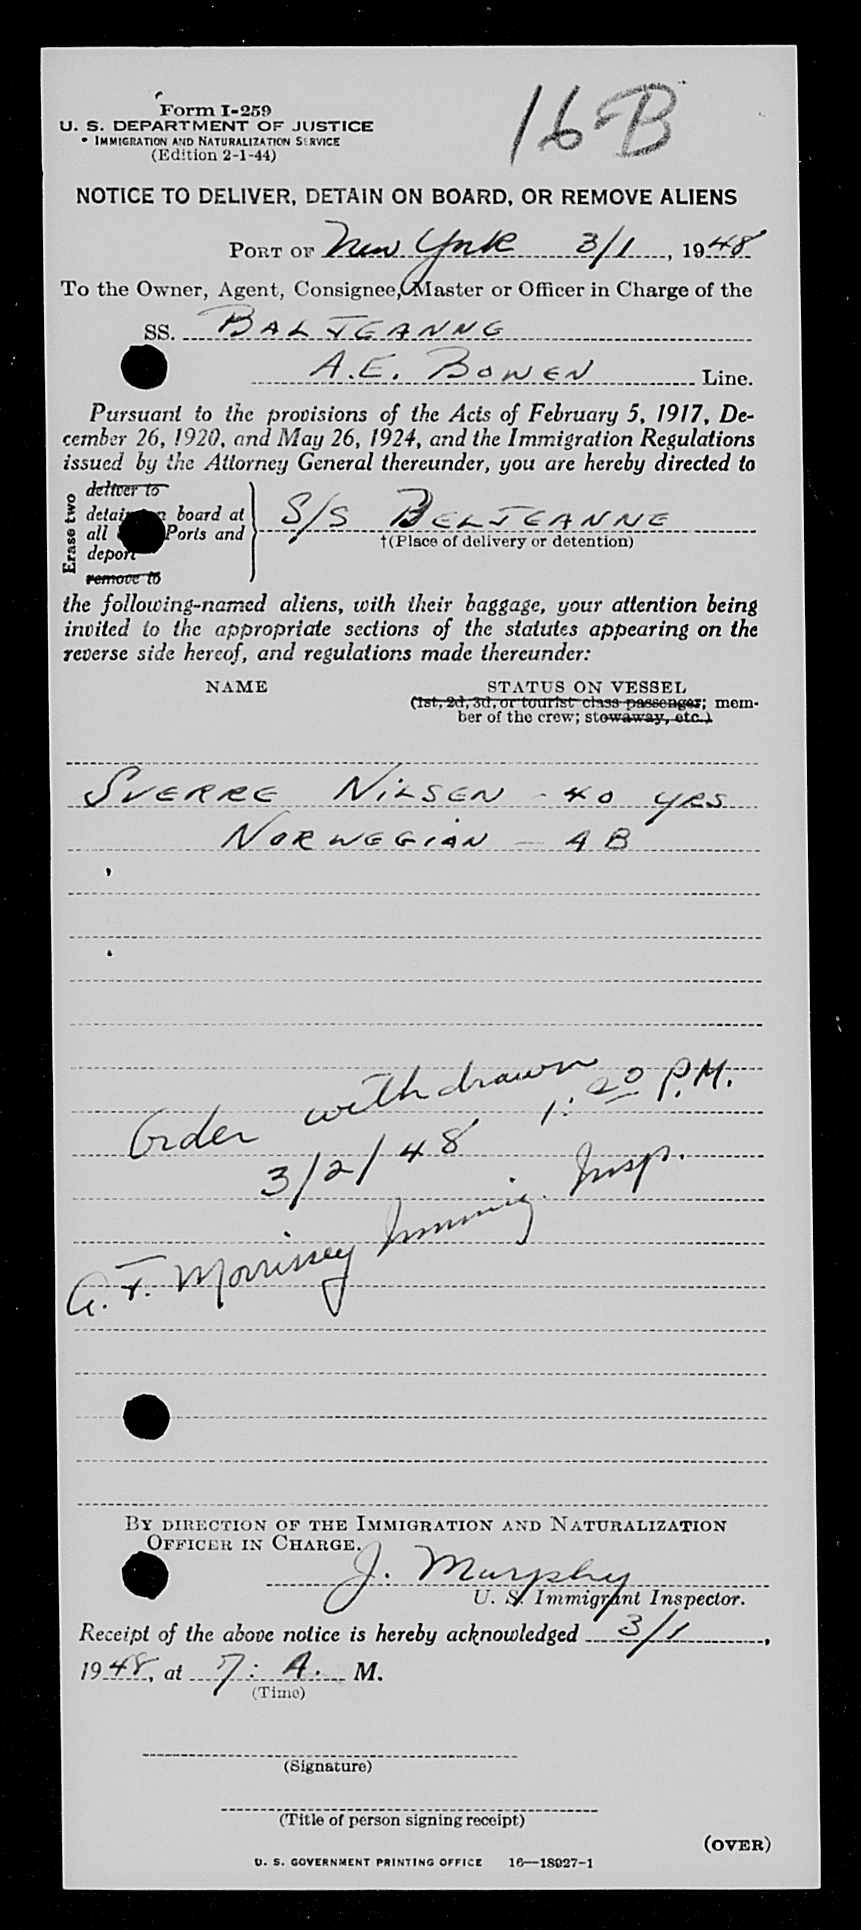 Form I-259
16-B
U. S. DEPARTMENT OF JUSTICE
IMMIGRATION AND NATURALIZATION SERVICE
(Edition 2-1-44)
NOTICE TO DELIVER, DETAIN ON BOARD, OR REMOVE ALIENS
PORT OF New York 3/1, 1948
To the Owner, Agent, Consignee, Master or Officer in Charge of the
SS. BALJEANNE
A.E. BOWEN Line.
Pursuant to the provisions of the Acts of February 5, 1917, De-
cember 26, 1920, and May 26, 1924, and the Immigration Regulations
issued by the Attorney General thereunder, you are hereby directed to
Erase two
deliver to
detain on board at
all Ports and
deport
remove to
S/S BELJEANNE
†(Place of delivery or detention)
the following-named aliens, with their baggage, your attention being
invited to the appropriate sections of the statutes appearing on the
reverse side hereof, and regulations made thereunder:
NAME STATUS ON VESSEL
(1st, 2d, 3d, or tourist class passenger; mem-
ber of the crew; stowaway, etc.)
SVERRE NILSEN - 40 YRS
NORWEGIAN - AB
Order withdrawn 1:20 P.M.
3/2/48
A. F. Morrissey Immig. Insp.
BY DIRECTION OF THE IMMIGRATION AND NATURALIZATION
OFFICER IN CHARGE.
J. Murphy
U. S. Immigrant Inspector.
Receipt of the above notice is hereby acknowledged 3/1,
1948, at 7: A. M.
(Time)
(Signature)
(Title of person signing receipt)
(OVER)
U. S. GOVERNMENT PRINTING OFFICE 16—18027-1